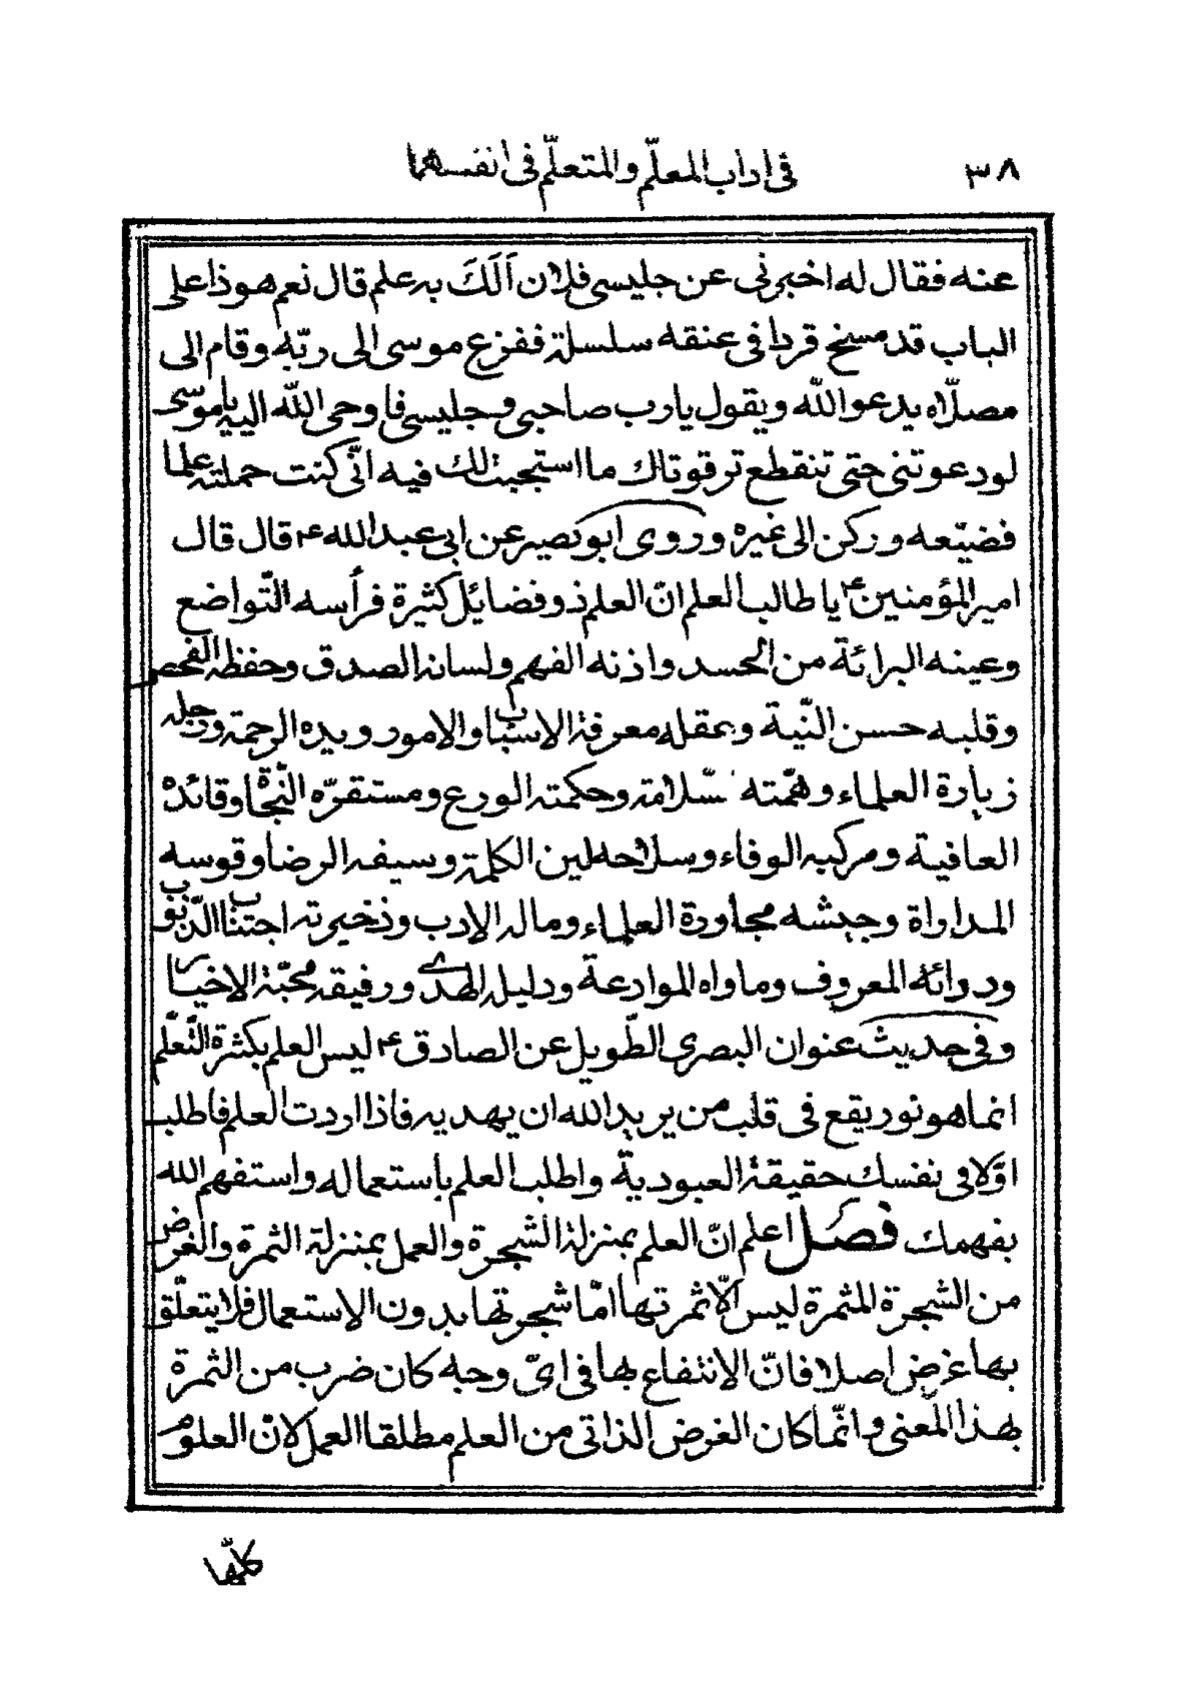 ٣٨
فى اداب المعلّم والمتعلّم فى انفسهما
عنه فقال له اخبرنى عن جليسى فلان اَلَكَ به علم قال نعم هوذا على
الباب قد مسخ قردا فى عنقه سلسلة ففزع موسى الى ربّه وقام الى
مصلّاه يدعو الله ويقول يارب صاحبى وجليسى فاوحى الله اليه ياموسى
لودعوتنى حتى تنقطع ترقوتاك ما استجبت لك فيه انّى كنت حملته علما
فضيّعه وركن الى غيره وروى ابوبصير عن ابى عبدالله ع قال قال
امير المؤمنين ع يا طالب العلم انّ العلم ذو فضايل كثيرة فرأسه التّواضع
وعينه البرائة من الحسد واذنه الفهم ولسانه الصدق وحفظه الفحص
وقلبه حسن النّية وعقله معرفة الاسباب والامور ويده الرحمة ورجله
زيارة العلماء وهمّته السّلامة وحكمته الورع ومستقرّه النّجاة وقائده
العافية ومركبه الوفاء وسلاحه لين الكلمة وسيفه الرضا وقوسه
المداراة وجيشه مجاورة العلماء وماله الادب وذخيرته اجتناب الذّنوب
وردائه المعروف وماواه الموادعة ودليله الهدى ورفيقه محبّة الاخيار
وفى حديث عنوان البصرى الطّويل عن الصادق ع ليس العلم بكثرة التّعلّم
انما هو نور يقع فى قلب من يريد الله ان يهديه فاذا اردت العلم فاطلب
اوّلا فى نفسك حقيقة العبوديّة واطلب العلم باستعماله واستفهم الله
يفهمك فصل اعلم انّ العلم بمنزلة الشجرة والعمل بمنزلة الثمرة والغرض
من الشجرة المثمرة ليس الّا ثمرتها امّا شجرتها بدون الاستعمال فلا يتعلّق
بها غرض اصلا فانّ الانتفاع بها فى اىّ وجه كان ضرب من الثمرة
بهذا المعنى وانّما كان الغرض الذاتى من العلم مطلقا العمل لانّ العلوم
كلّها